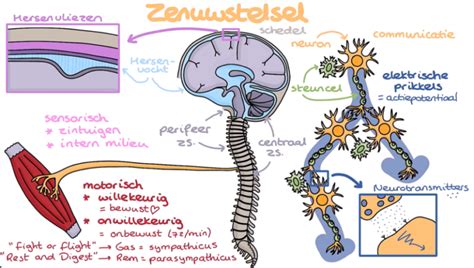 Zenuwstelsel
Hersenvliezen
schedel
neuron
communicatie
Hersen-
vocht
steuncel
elektrische
prikkels
= actiepotentiaal
sensorisch
* zintuigen
* intern milieu
perifeer
zs.
centraal
zs.
motorisch
* willekeurig
= bewust
* onwillekeurig
= onbewust (zs/min)
"fight or flight" → Gas = sympathicus
"Rest and Digest" → Rem = parasympathicus
Neurotransmitters